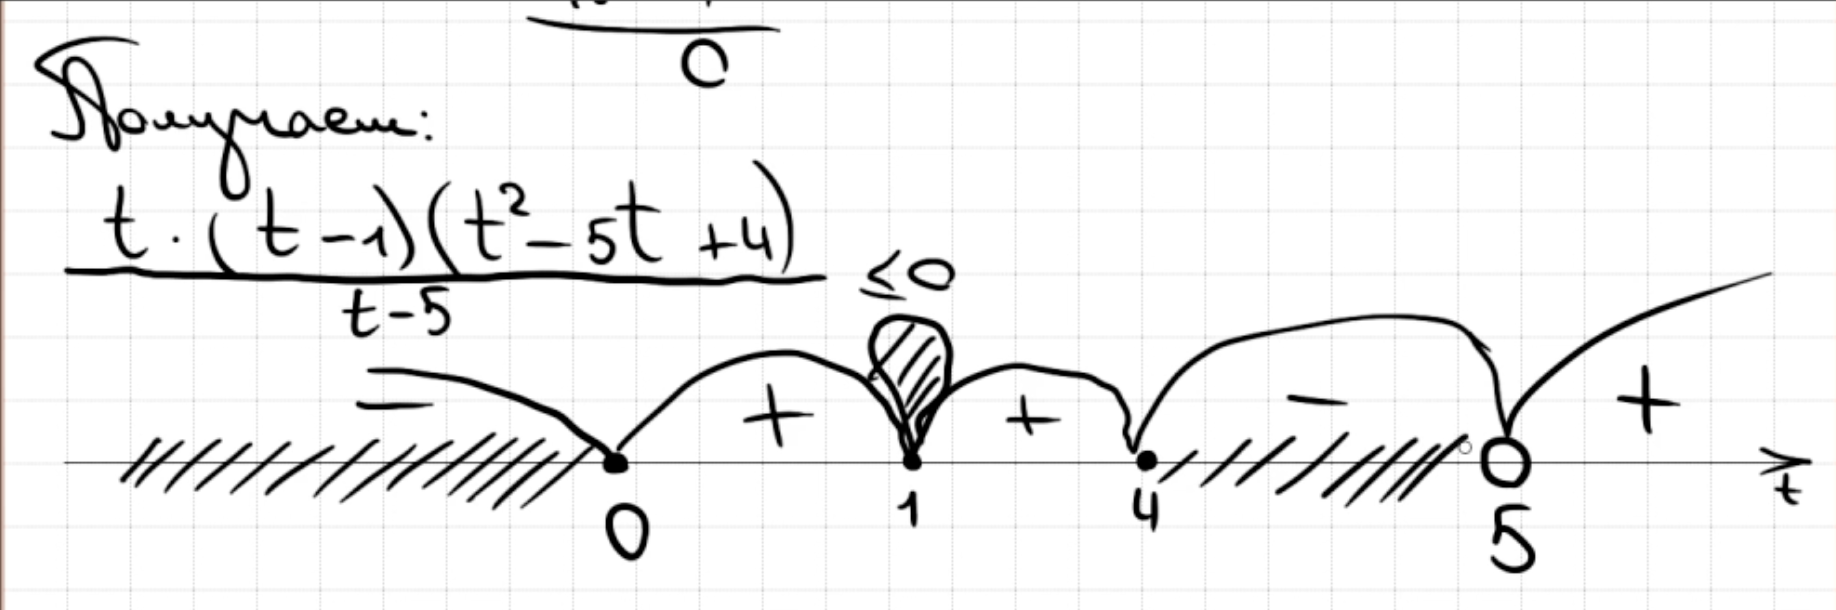 0
Получаем:
t · (t-1)(t²-5t+4)
t-5
≤0
- + + - +
0 1 4 5 t